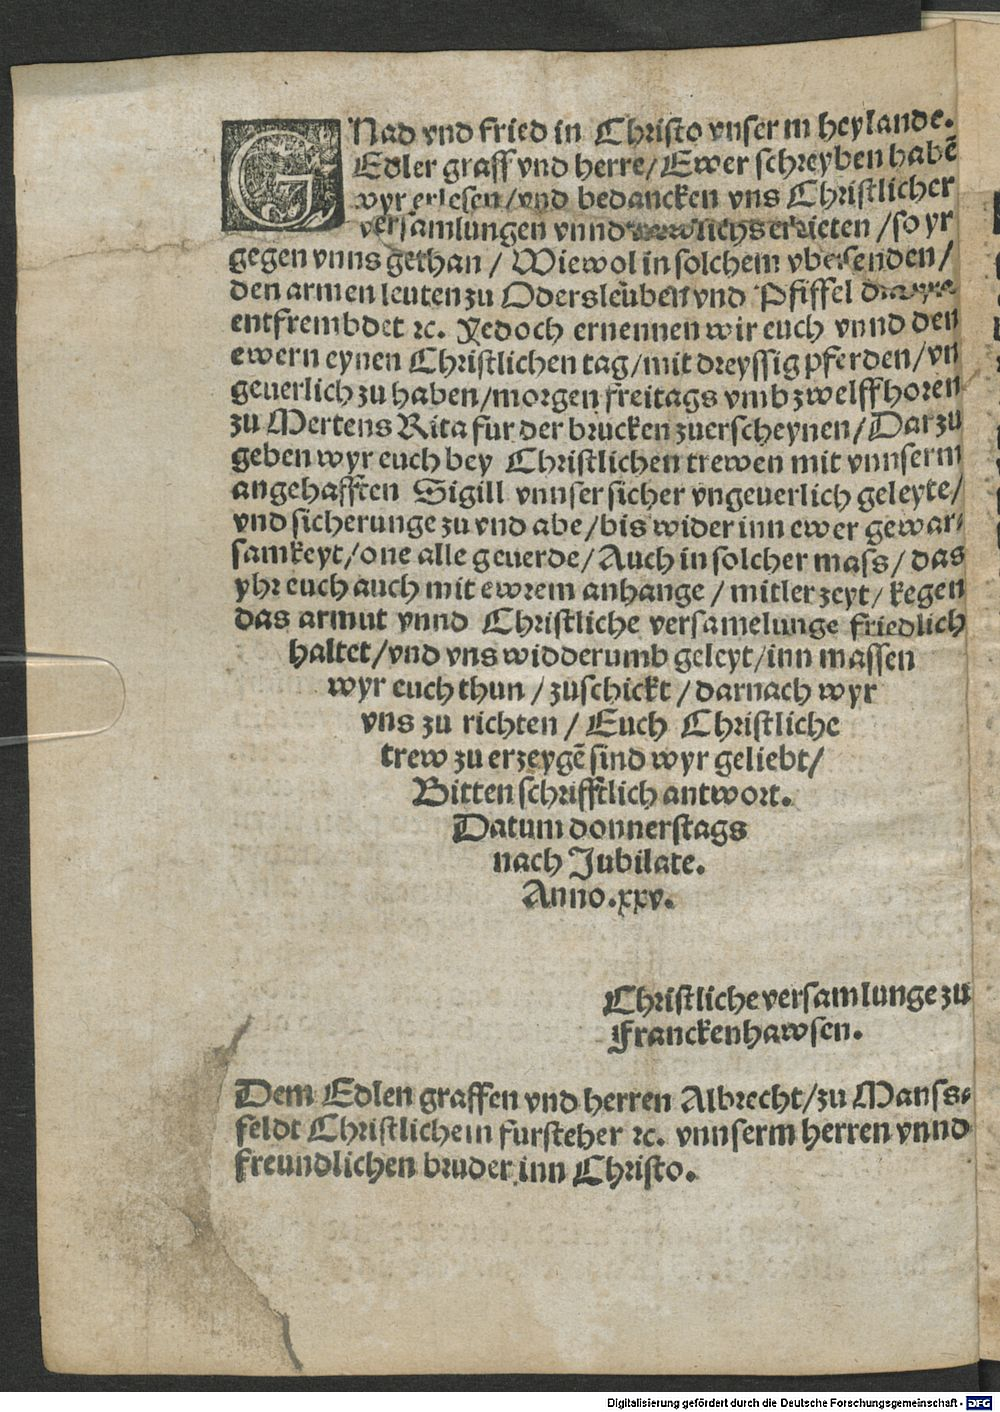 GNad vnd fried in Christo vnser m heylande.
Edler graff vnd herre/ Ewer schreyben habē
wyr erlesen/vnd bedancken vns Christlicher
versamlungen vnnd erbieten /so yr
gegen vnns gethan / Wiewol in solchem vbersenden/
den armen leuten zu Odersleuben vnd Pfiffel
entfrembdet ꝛc. Yedoch ernennen wir euch vnnd den
ewern eynen Christlichen tag/mit dreyssig pferden/vn
geuerlich zu haben/morgen freitags vmb zwelffhoren
zu Mertens Rita fur der brucken zuerscheynen/Dar zu
geben wyr euch bey Christlichen trewen mit vnnserm
angehafften Sigill vnnser sicher vngeuerlich geleyte/
vnd sicherunge zu vnd abe/bis wider inn ewer gewar⸗
samkeyt/one alle geuerde/Auch in solcher mass/das
yhr euch auch mit ewrem anhange/mitler zeyt/kegen
das armut vnnd Christliche versamelunge friedlich
haltet/vnd vns widderumb geleyt/inn massen
wyr euch thun /zuschickt /darnach wyr
vns zu richten / Euch Christliche
trew zu erzeygē sind wyr geliebt/
Bitten schrifftlich antwort.
Datum donnerstags
nach Jubilate.
Anno.xxv.
Christliche versamlunge zu
Franckenhawsen.
Dem Edlen graffen vnd herren Albrecht/zu Manss⸗
feldt Christlichem fursteher ꝛc. vnnserm herren vnnd
freundlichen bruder inn Christo.
Digitalisierung gefördert durch die Deutsche Forschungsgemeinschaft - DFG